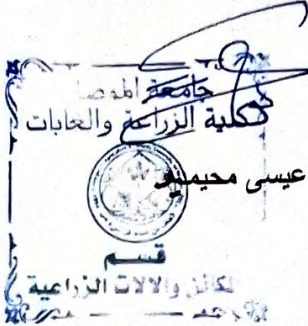 جامعة الموصل
كلية الزراعة والغابات
عيسى محيميد
قسم
المكائن والآلات الزراعية